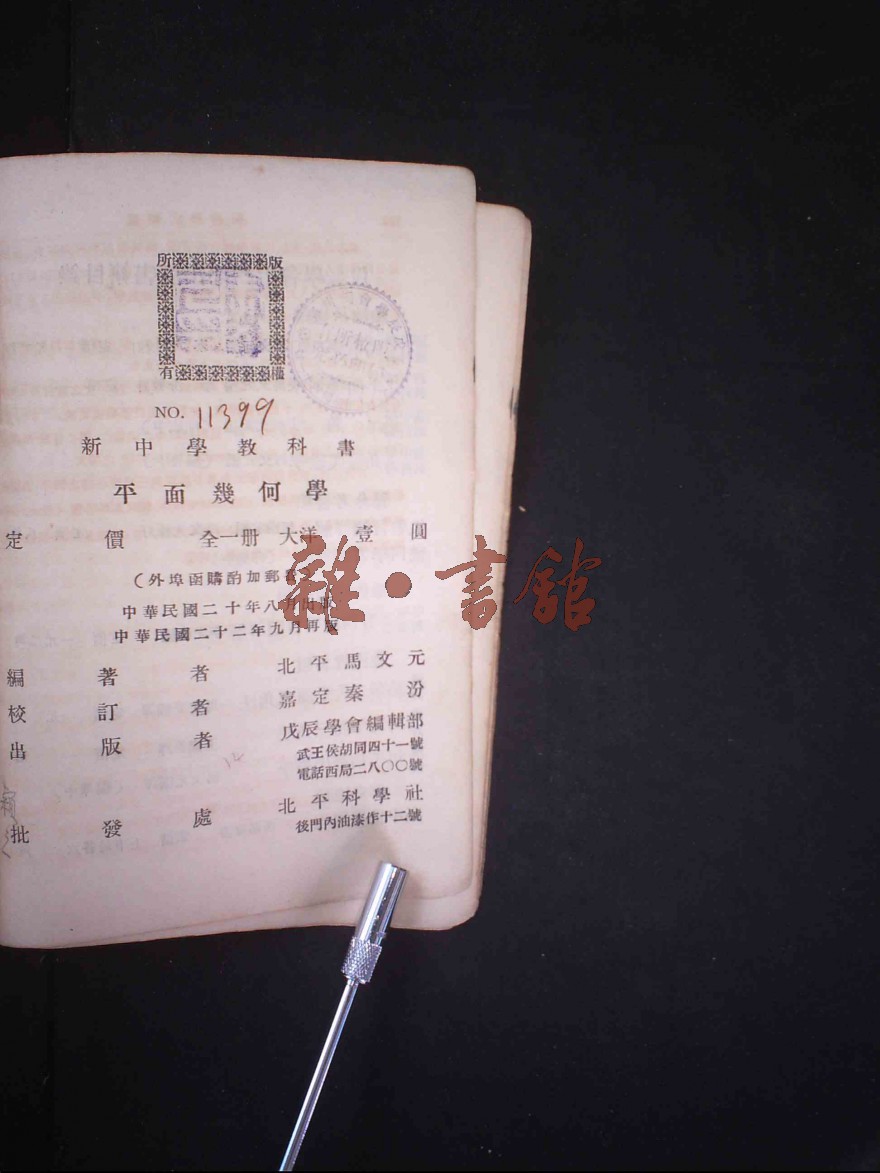 所 版
有 權
NO. 11399
新中學教科書
平面幾何學
定價 全一册 大洋 壹圓
(外埠函購酌加郵
中華民國二十年八月出版
中華民國二十二年九月再版
編著者 北平馬文元
校訂者 嘉定秦汾
出版者 戊辰學會編輯部
武王侯胡同四十一號
電話西局二八〇〇號
批發處 北平科學社
後門內油漆作十二號
雜·書館